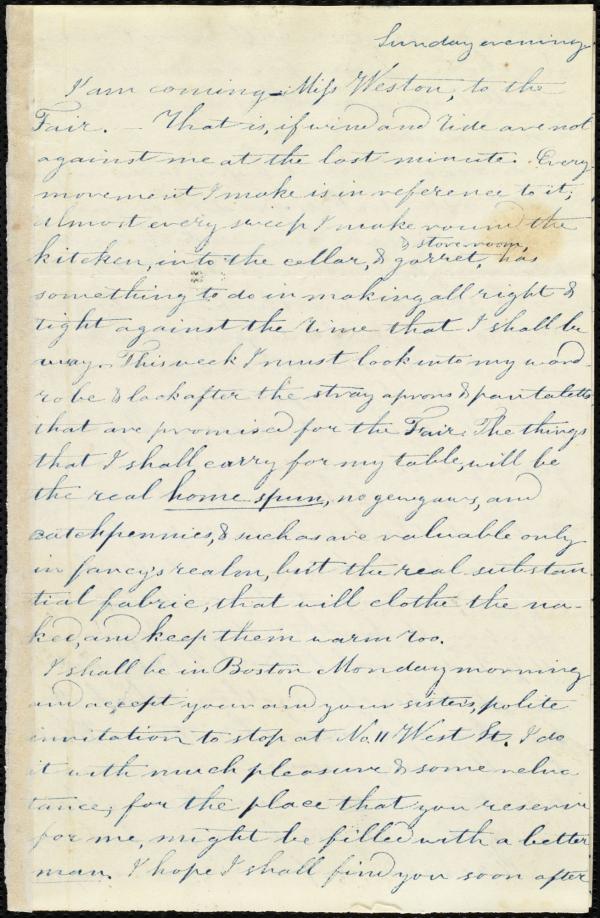 Sunday evening
I am coming Miss Weston, to the
Fair. – That is, if wind and tide are not
against me at the last minute. Every
movement I make is in reference to it;
almost every sweep I make round the
& storeroom,
kitchen, into the cellar, & garret, has
something to do in making all right &
tight against the time that I shall be
away. This week I must look into my ward-
robe & look after the stray aprons & pantaletts
that are promised for the Fair. The things
that I shall carry for my table, will be
the real home spun, no gewgaws, and
catchpennies, & such as are valuable only
in fancy's realm, but the real substan
tial fabric, that will clothe the na-
ked, and keep them warm too.
I shall be in Boston Monday morning
and accept your and your sisters, polite
invitation to stop at No. 11 West St. I do
it with much pleasure & some reluc
tance; for the place that you reserve
for me, might be filled with a better
man. I hope I shall find you soon after